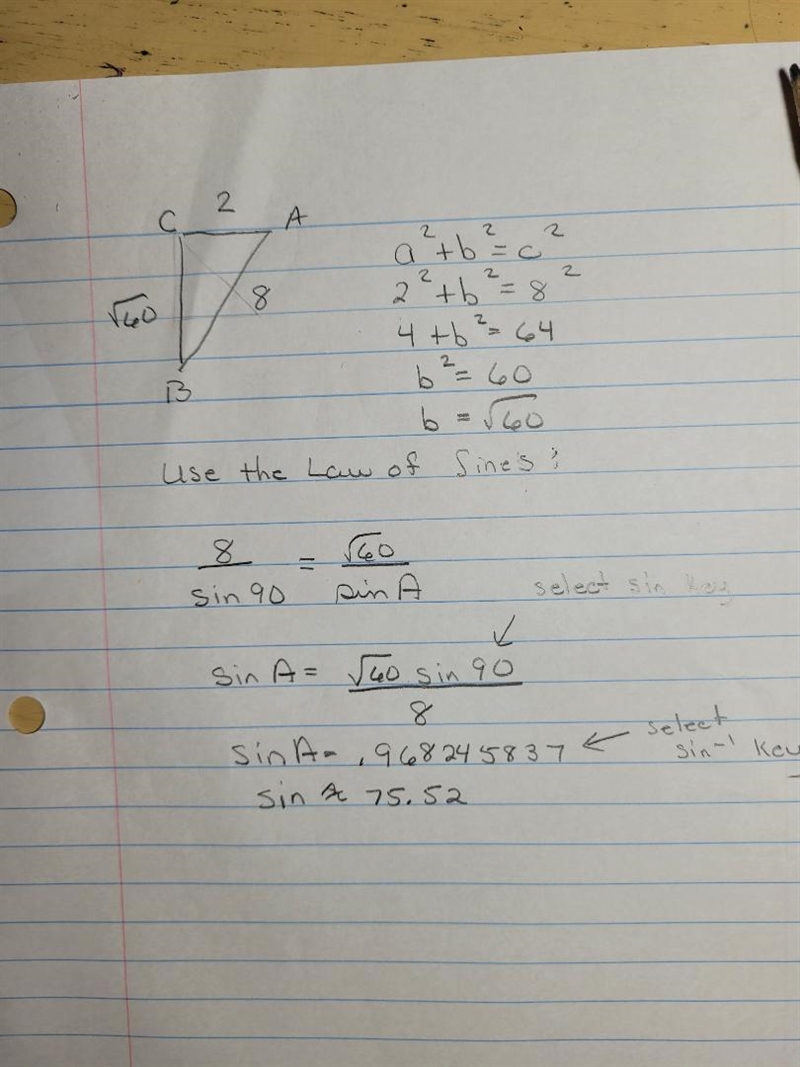 2
C A
√60 8
B
a² + b² = c²
2² + b² = 8²
4 + b² = 64
b² = 60
b = √60
Use the Law of Sine's :
8 / sin 90 = √60 / sin A
select sin key
sin A = √60 sin 90 / 8
sin A = .968245837 ← select sin⁻¹ key
sin ≈ 75.52